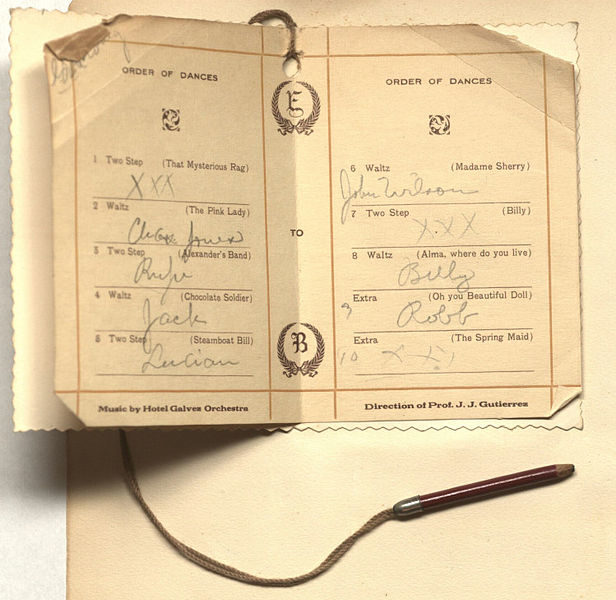 ORDER OF DANCES
1 Two Step (That Mysterious Rag)
XXX
2 Waltz (The Pink Lady)
Jones
3 Two Step (Alexander's Band)
Rufu
4 Waltz (Chocolate Soldier)
Jack
5 Two Step (Steamboat Bill)
Lucian
Music by Hotel Galvez Orchestra
E
TO
B
ORDER OF DANCES
6 Waltz (Madame Sherry)
John Wilson
7 Two Step (Billy)
X.X X
8 Waltz (Alma, where do you live)
Billy
9 Extra (Oh you Beautiful Doll)
Robb
Extra (The Spring Maid)
10 X X
Direction of Prof. J. J. Gutierrez